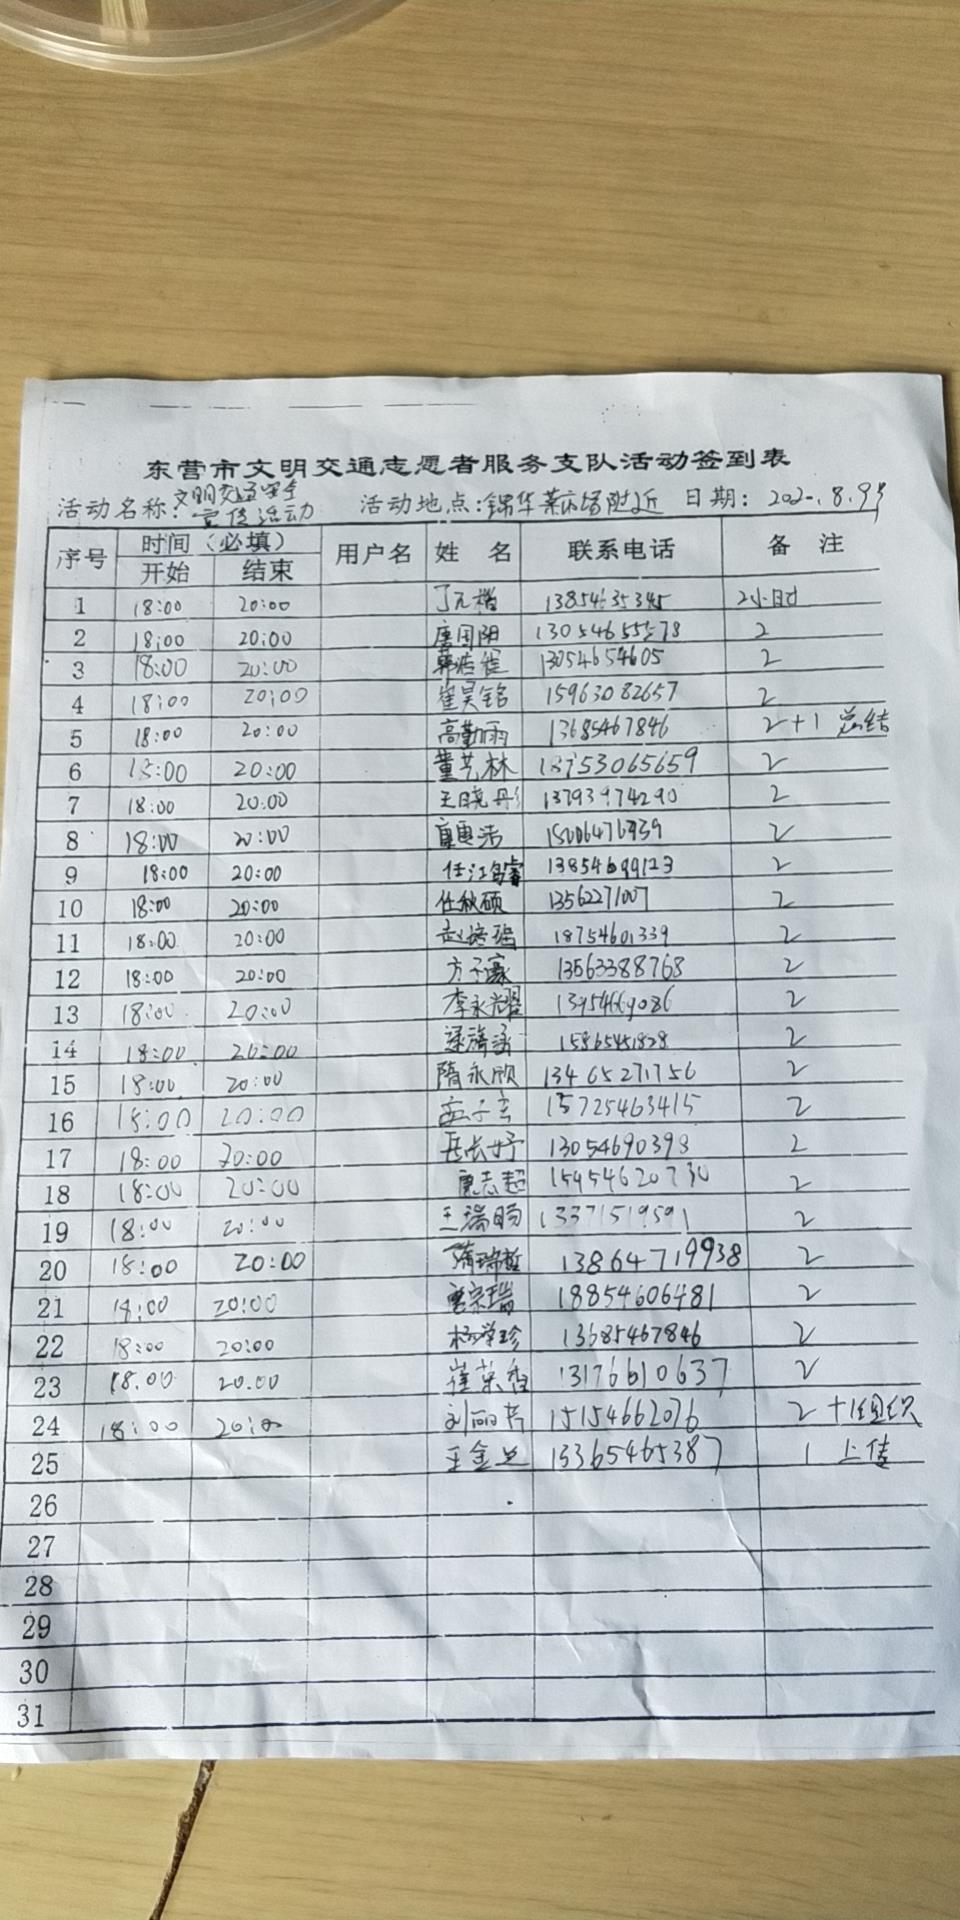 东营市文明交通志愿者服务支队活动签到表
活动名称：文明交通安全宣传活动 活动地点：锦华菜市场附近 日期：202.8.9号
序号 时间（必填） 用户名 姓 名 联系电话 备 注
开始 结束
1 18:00 20:00 13854635345 2小时
2 18:00 20:00 唐国阳 13054655578 2
3 18:00 20:00 13054654605 2
4 18:00 20:00 崔昊铭 15963082657 2
5 18:00 20:00 高勤雨 13685467846 2+1 总结
6 18:00 20:00 董艺林 13753065659 2
7 18:00 20:00 王晓彤 13793974290 2
8 18:00 20:00 2
9 18:00 20:00 13854699123 2
10 18:00 20:00 任秋硕 13562271007 2
11 18:00 20:00 18754601339 2
12 18:00 20:00 方子豪 13563388768 2
13 18:00 20:00 李永耀 13954669086 2
14 18:00 20:00 2
15 18:00 20:00 隋永欣 13465271756 2
16 18:00 20:00 15725463415 2
17 18:00 20:00 13054690393 2
18 18:00 20:00 15954620730 2
19 18:00 20:00 王瑞旸 13371519591 2
20 18:00 20:00 13864719938 2
21 18:00 20:00 唐宗瑞 18854606481 2
22 18:00 20:00 杨学珍 13685467846 2
23 18:00 20:00 崔荣香 13176610637 2
24 18:00 20:00 刘丽芳 15154662076 2+1组织
25 13365465387 1 上传
26
27
28
29
30
31